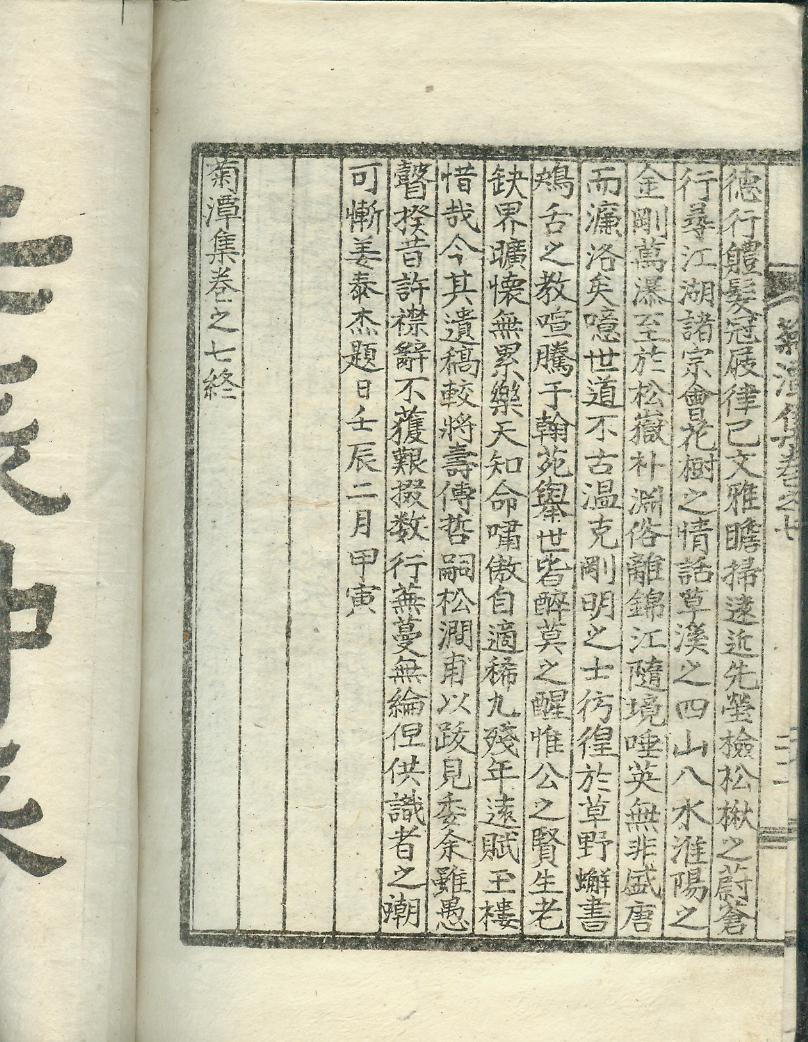 菊潭集卷之七
德行軆髮冠屐律己文雅瞻掃遠近先塋檢松楸之蔚蒼
行尋江湖諸宗會花樹之情話草溪之四山八水淮陽之
金剛萬瀑至於松嶽朴淵俗離錦江隨境唾英無非盛唐
而濂洛矣噫世道不古温克剛明之士彷徨於草野蠏書
鴂舌之教喧騰于翰苑擧世皆醉莫之醒惟公之賢生老
缺界曠懷無累樂天知命嘯傲自適稀九殘年遠賦玉樓
惜哉今其遺稿較將壽傳哲嗣松澗甫以跋見委余雖愚
瞽揆昔許襟辭不獲艱掇数行蕪蔓無綸但供識者之嘲
可慚姜泰杰題日壬辰二月甲寅
菊潭集卷之七終